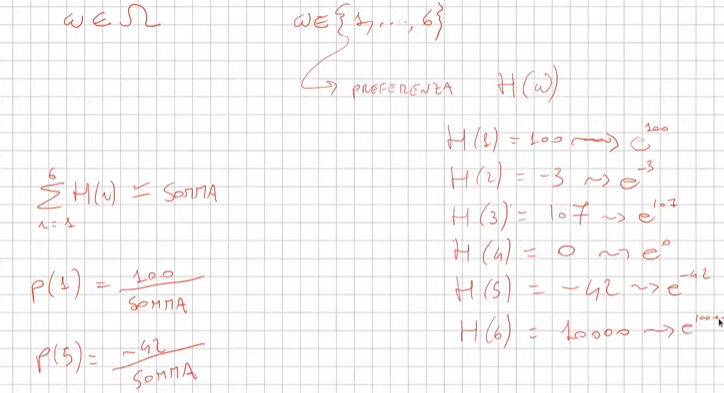 ω ∈ Ω
ω ∈ {1, ..., 6}
PREFERENZA H(ω)
H(1) = 100 ⟿ e^100
H(2) = -3 ⟿ e^-3
H(3) = 107 ⟿ e^107
H(4) = 0 ⟿ e^0
H(5) = -42 ⟿ e^-42
H(6) = 10000 → e^100
6
∑ H(i) = SOMMA
i=1
P(1) = 100 / SOMMA
P(5) = -42 / SOMMA